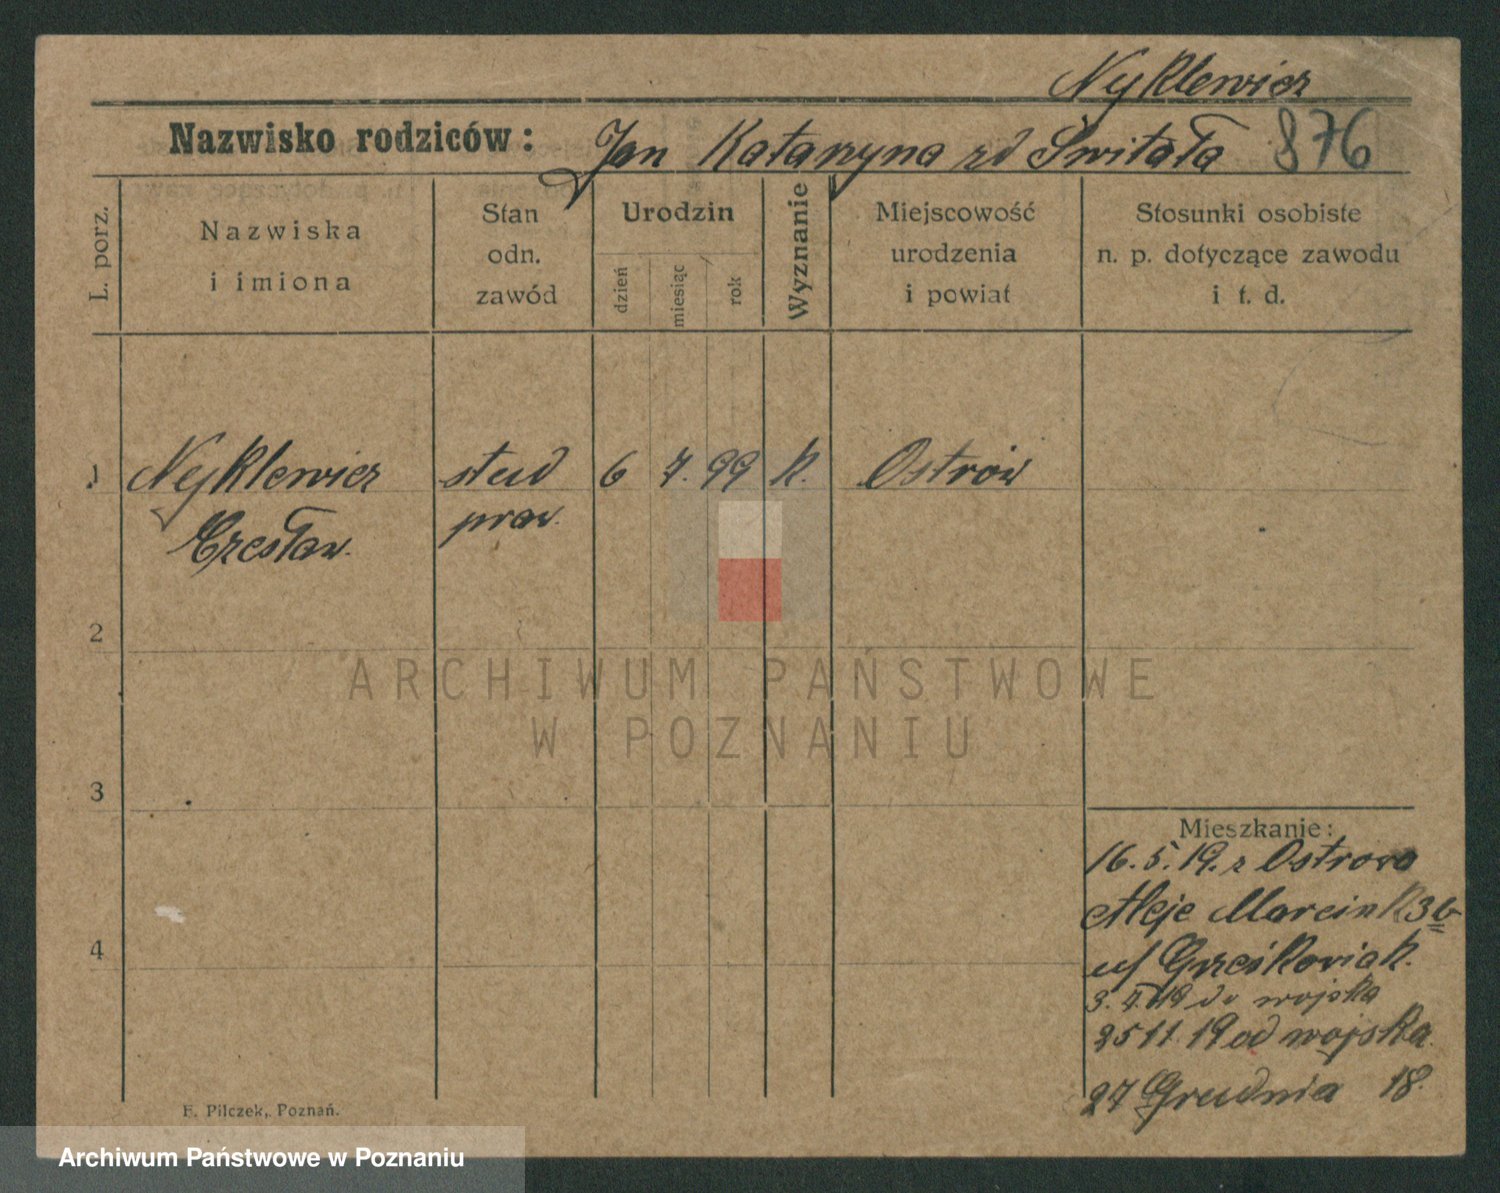 Nyklewicz
Nazwisko rodziców: Jan Katarzyna zd Świtała 876
L. porz.
Nazwiska
i imiona
Stan
odn.
zawód
Urodzin
dzień
miesiąc
rok
Wyznanie
Miejscowość
urodzenia
i powiat
Stosunki osobiste
n. p. dotyczące zawodu
i t. d.
1 Nyklewicz stud 6 7. 99 k. Ostrów
Czesław. praw.
2
3
4
Mieszkanie:
16.5.19. z Ostrowa
Aleje Marcink 36
u/ Grześkowiak.
3. 7. 19 do wojska
25 11. 19 od wojska.
27 Grudnia 18.
F. Pilczek, Poznań.
ARCHIWUM PAŃSTWOWE
W POZNANIU
Archiwum Państwowe w Poznaniu